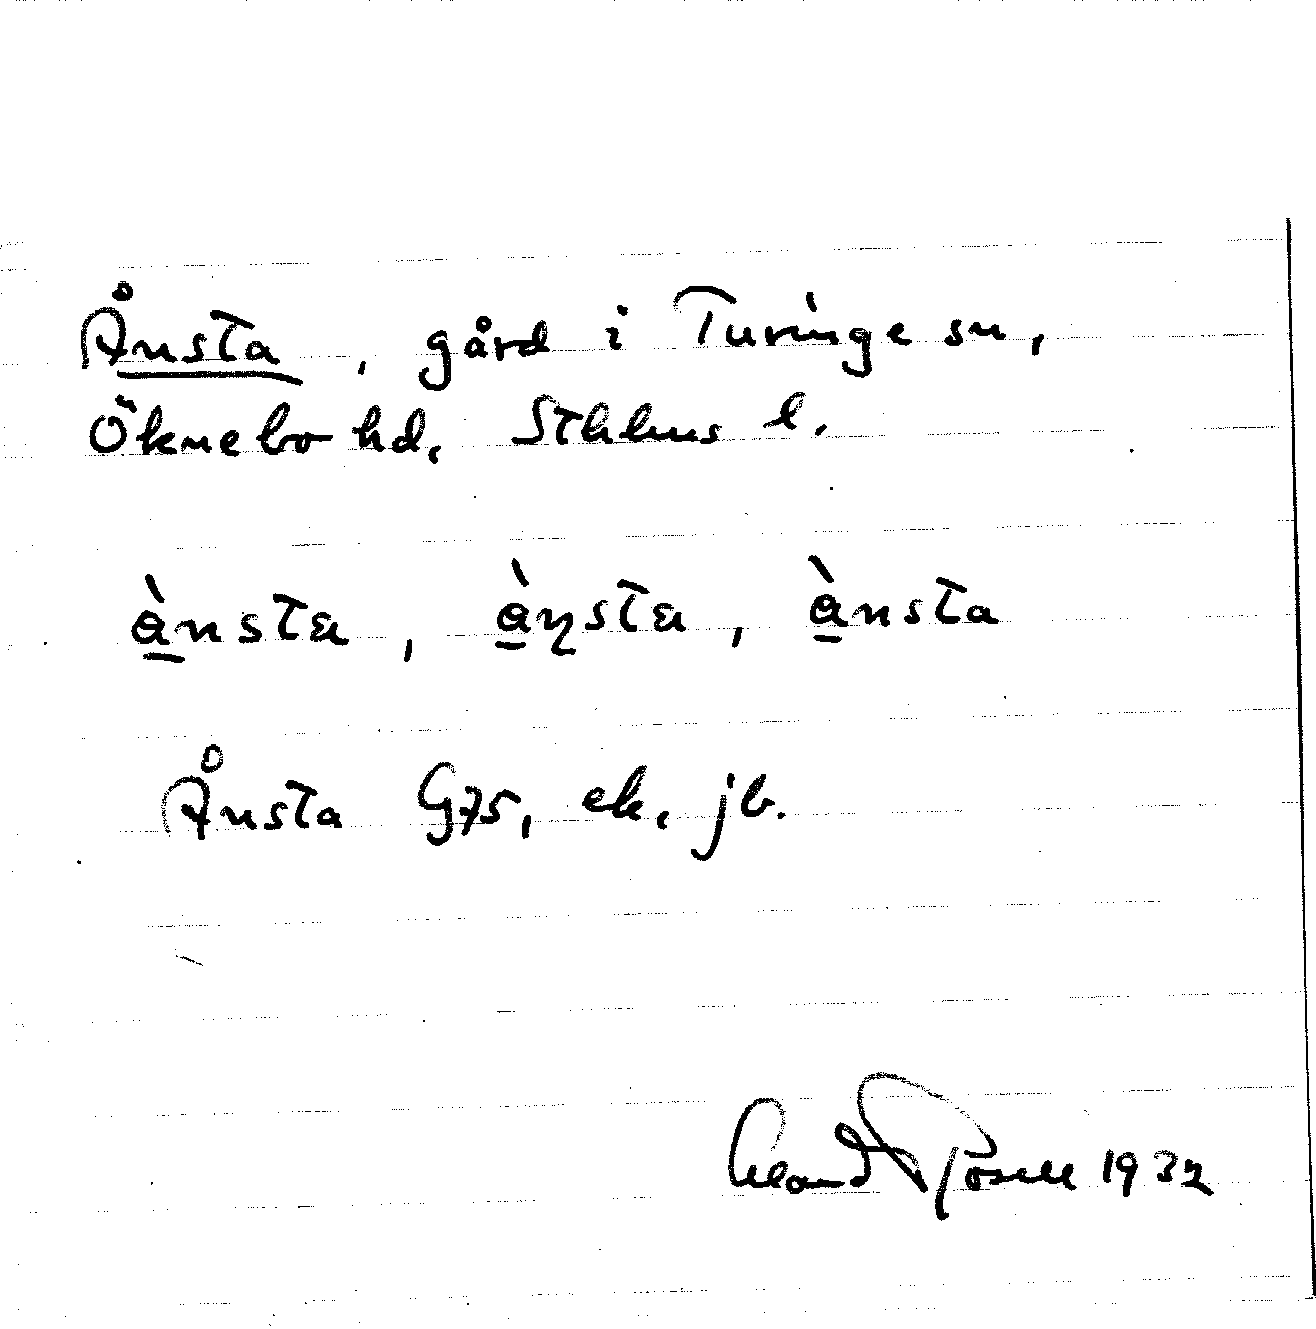 Ånsta, gård i Turinge sn,
Öknebo hd, Sthlms l.
å̱̀nsta, å̱̀ṉsta, å̱̀nsta
Ånsta G75, ek, jb.
1932